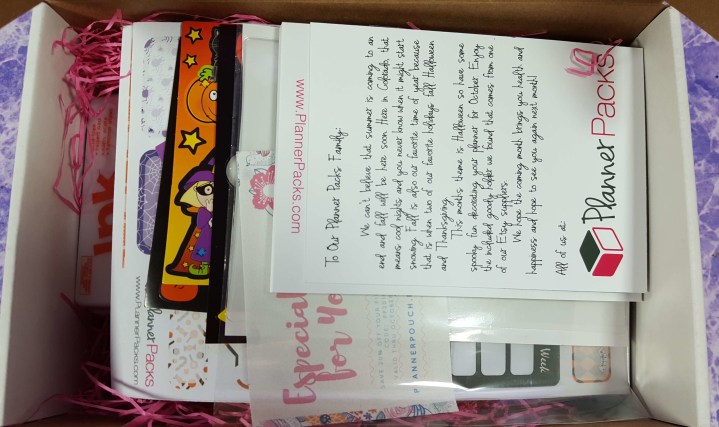 To Our Planner Packs Family:
We can't believe that summer is coming to an
end and fall will be here soon. Here in Colorado, that
means cool nights and you never know when it might start
snowing. Fall is also our favorite time of year because
that is when two of our favorite holidays fall, Halloween
and Thanksgiving.
This months theme is Halloween so have some
spooky fun decorating your planner for October. Enjoy
the included goody holder we found that comes from one
of our Etsy suppliers.
We hope the coming month brings you health and
happiness and hope to see you again next month!
All of us at:
PlannerPacks
www.PlannerPacks.com
Especial
for Yo
PLANNERPOUCH
ink
PlannerPacks
www.PlannerPacks.com
Week